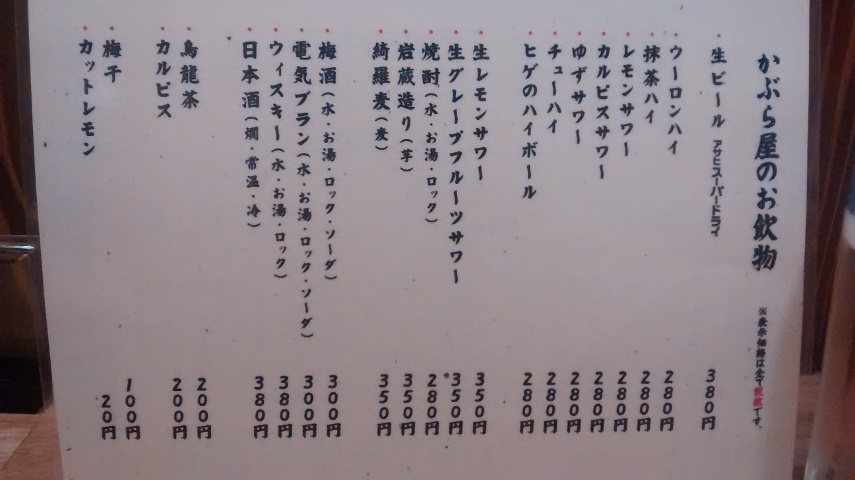 かぶら屋のお飲物
※表示価格は全て税抜です。
・生ビール アサヒスーパードライ 380円
・ウーロンハイ 280円
・抹茶ハイ 280円
・レモンサワー 280円
・カルピスサワー 280円
・ゆずサワー 280円
・チューハイ 280円
・ヒゲのハイボール 280円
・生レモンサワー 350円
・生グレープフルーツサワー 350円
・焼酎(水・お湯・ロック) 280円
・岩蔵造り(芋) 350円
・綺羅麦(麦) 350円
・梅酒(水・お湯・ロック・ソーダ) 300円
・電気ブラン(水・お湯・ロック・ソーダ) 300円
・ウィスキー(水・お湯・ロック) 380円
・日本酒(燗・常温・冷) 380円
・烏龍茶 200円
・カルピス 200円
・梅干 100円
・カットレモン 20円